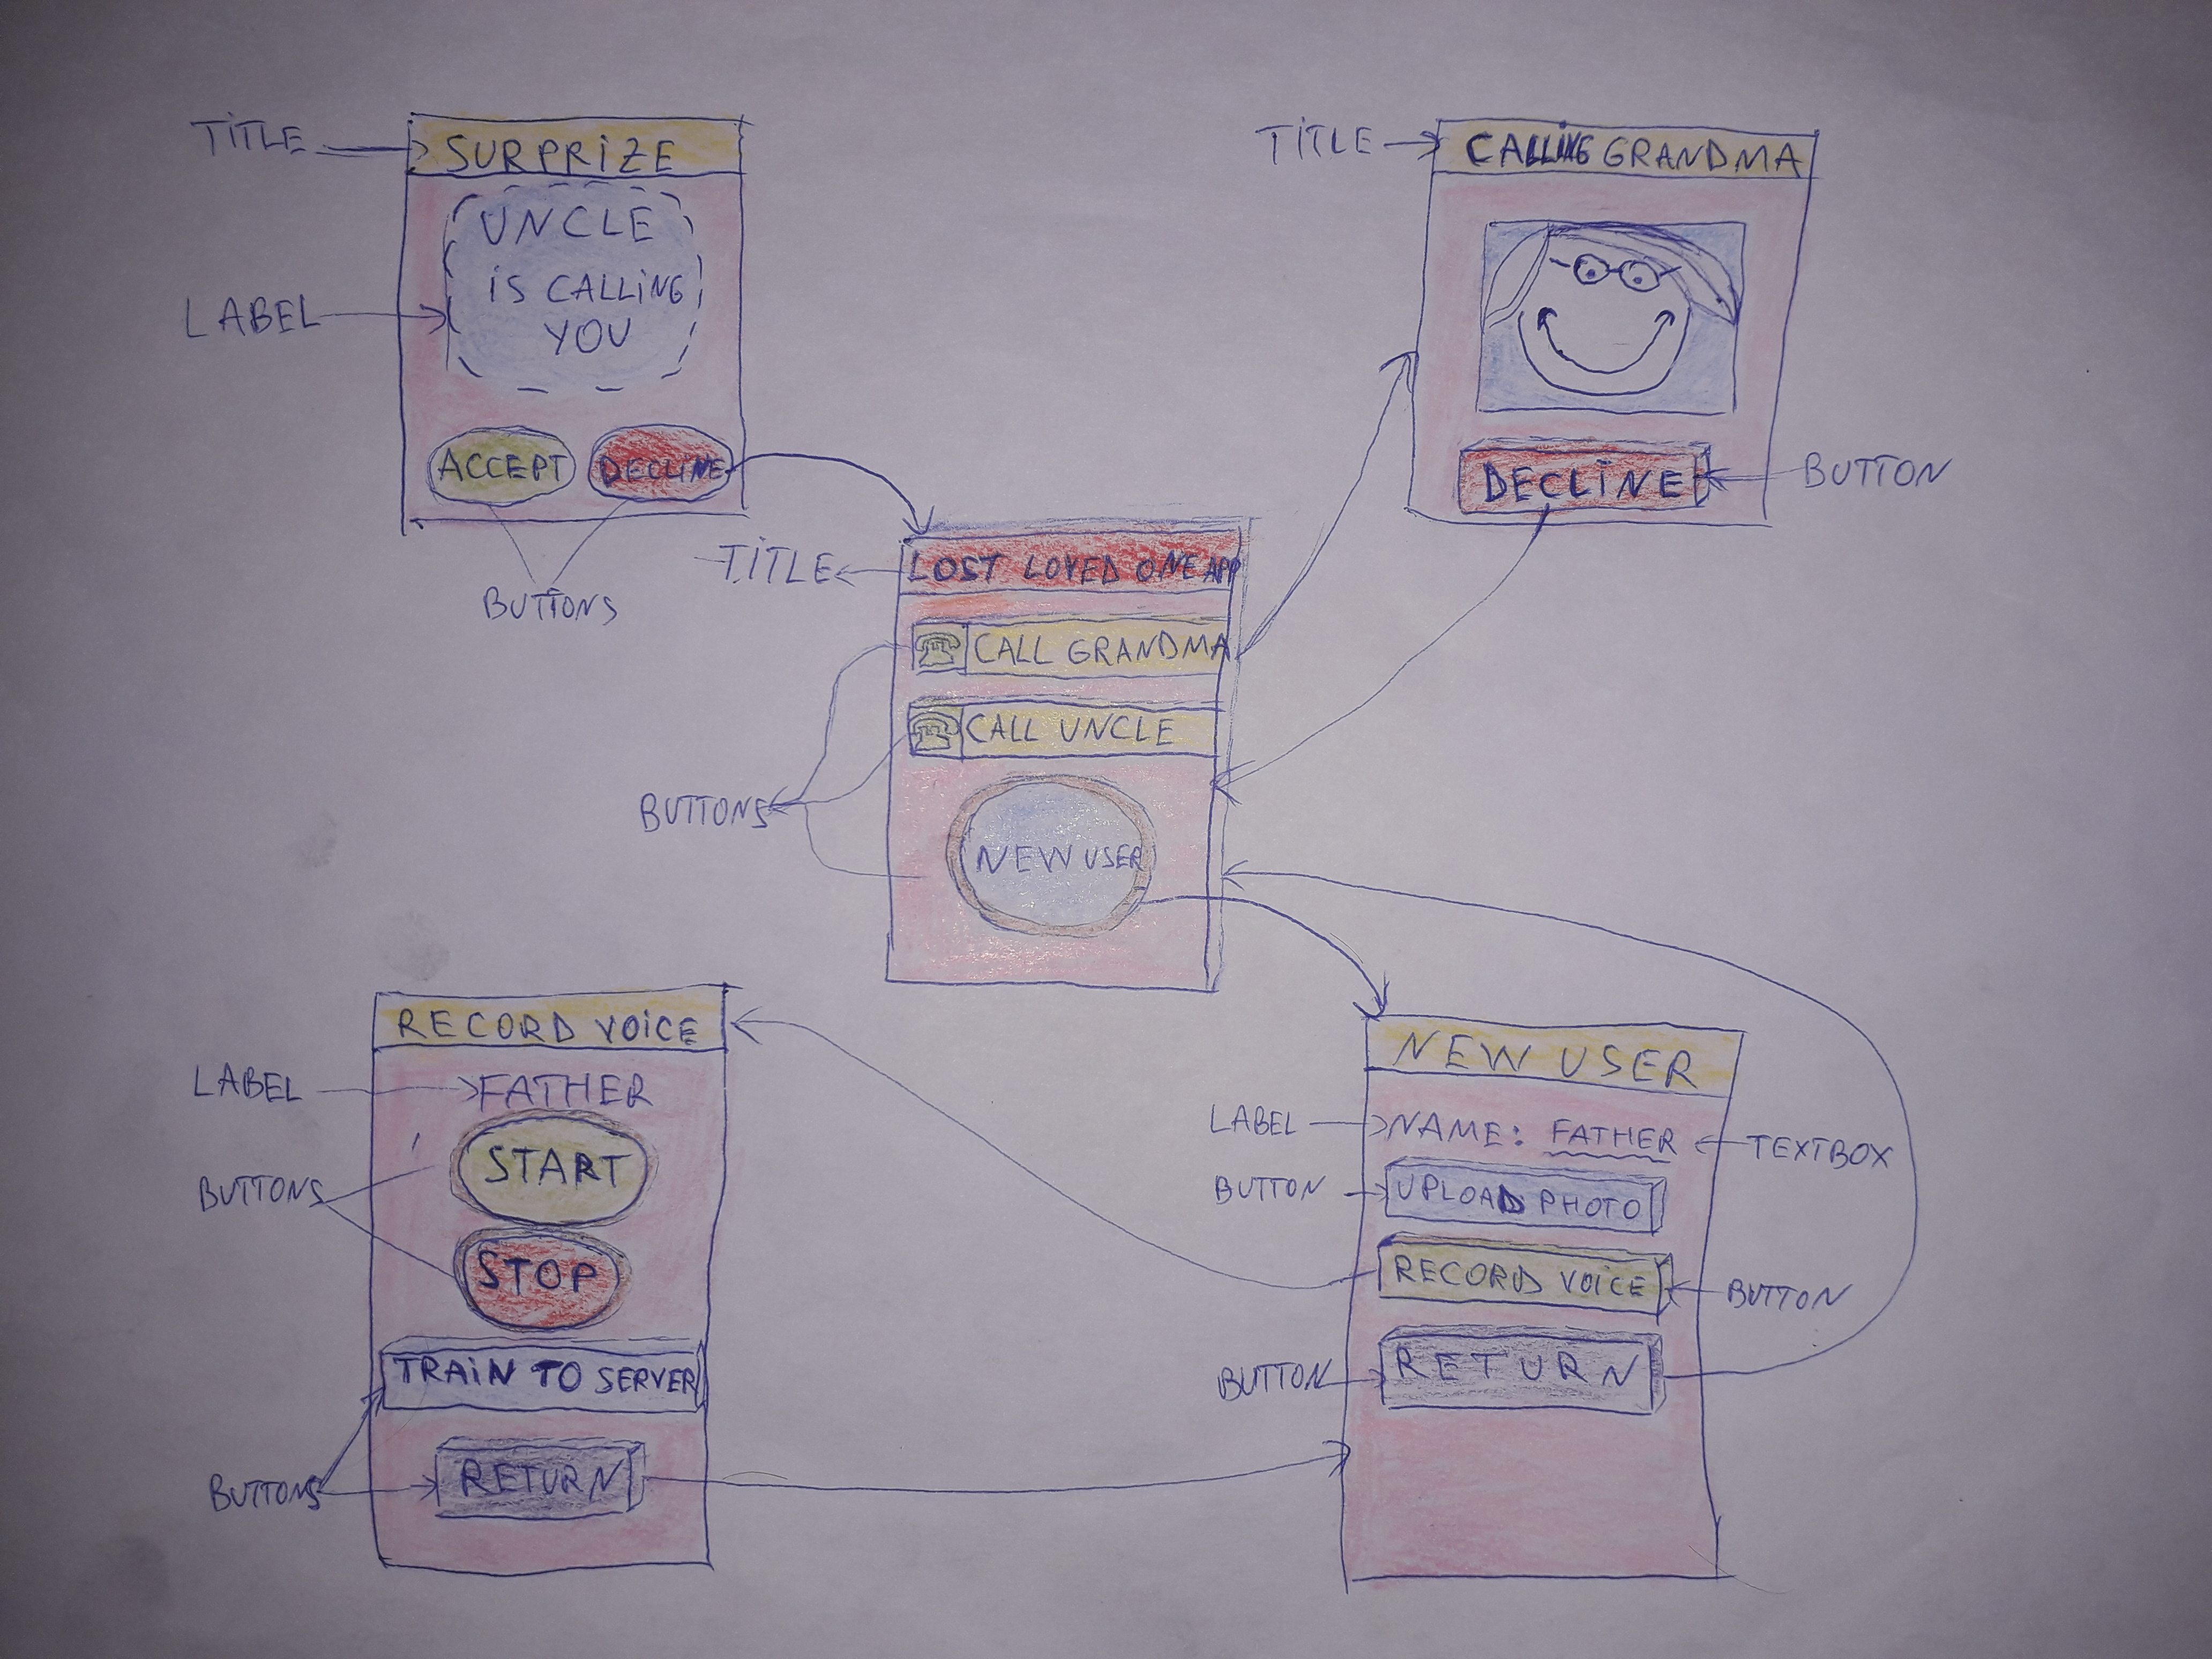 TITLE
SURPRIZE
UNCLE
IS CALLING
YOU
LABEL
ACCEPT
DECLINE
BUTTONS
TITLE
CALLING GRANDMA
DECLINE
BUTTON
TITLE
LOST LOVED ONE APP
CALL GRANDMA
CALL UNCLE
BUTTONS
NEW USER
RECORD VOICE
LABEL
FATHER
START
BUTTONS
STOP
TRAIN TO SERVER
BUTTONS
RETURN
NEW USER
LABEL
NAME: FATHER
TEXTBOX
BUTTON
UPLOAD PHOTO
RECORD VOICE
BUTTON
BUTTON
RETURN